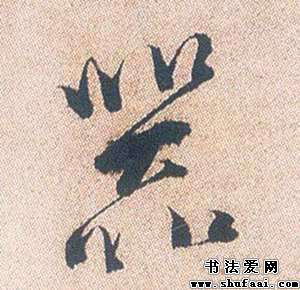 器
书法爱网
www.shufaai.com